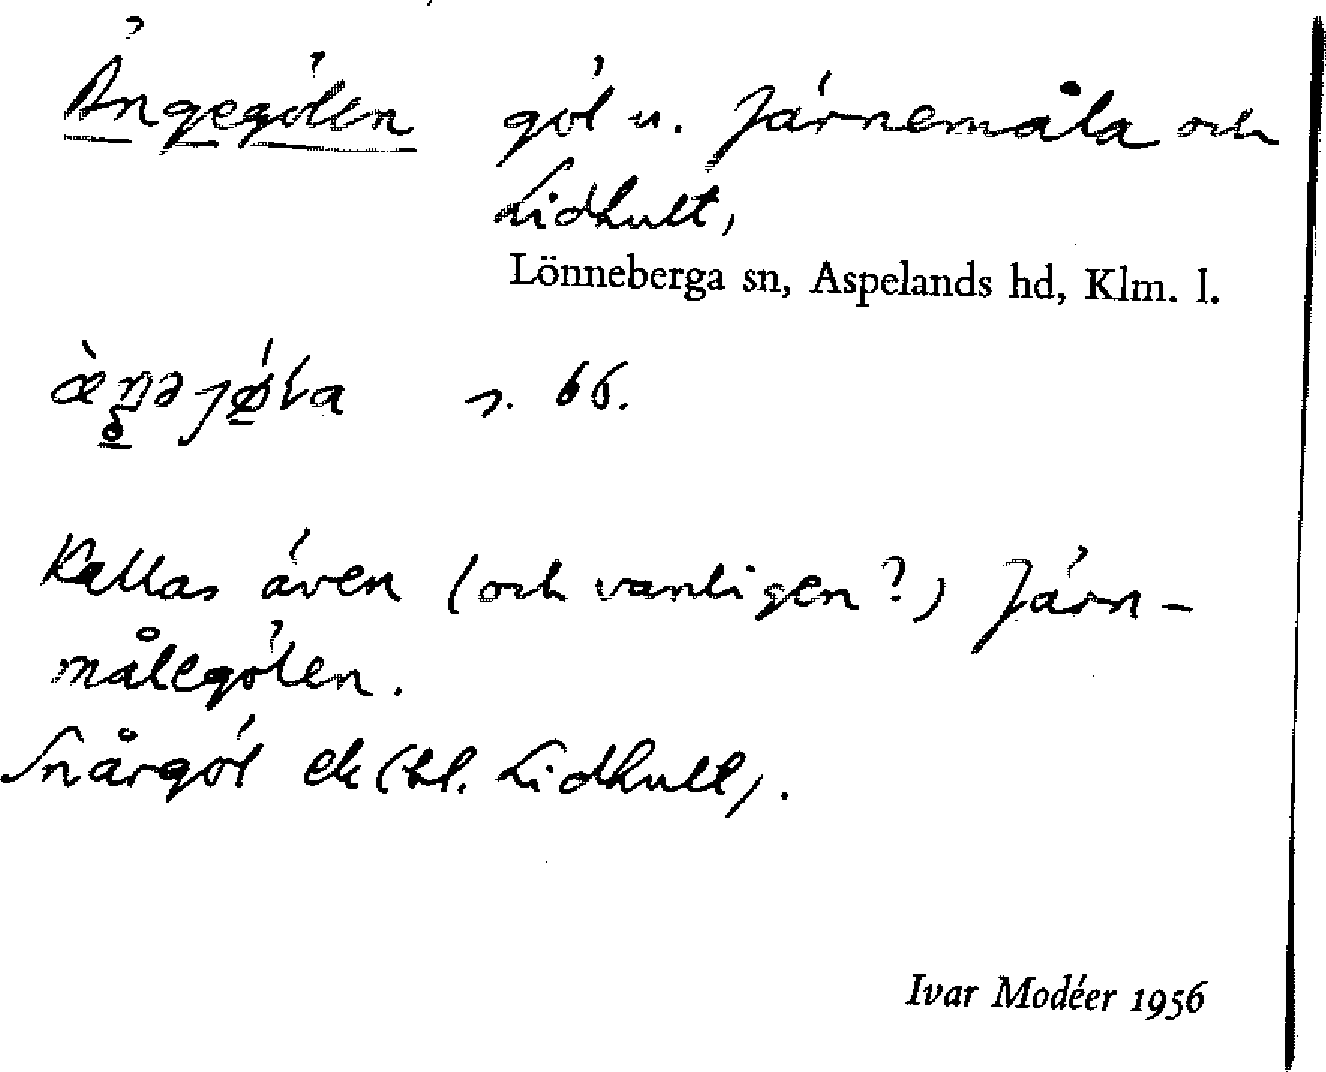 Ängegölen göl u. Järnemåla och
Lidhult,
Lönneberga sn, Aspelands hd, Klm. l.
s. 66.
Kallas även (och vanligen?) Järn-
målegölen.
Snårgöl ek (bl. Lidhult).
Ivar Modéer 1956